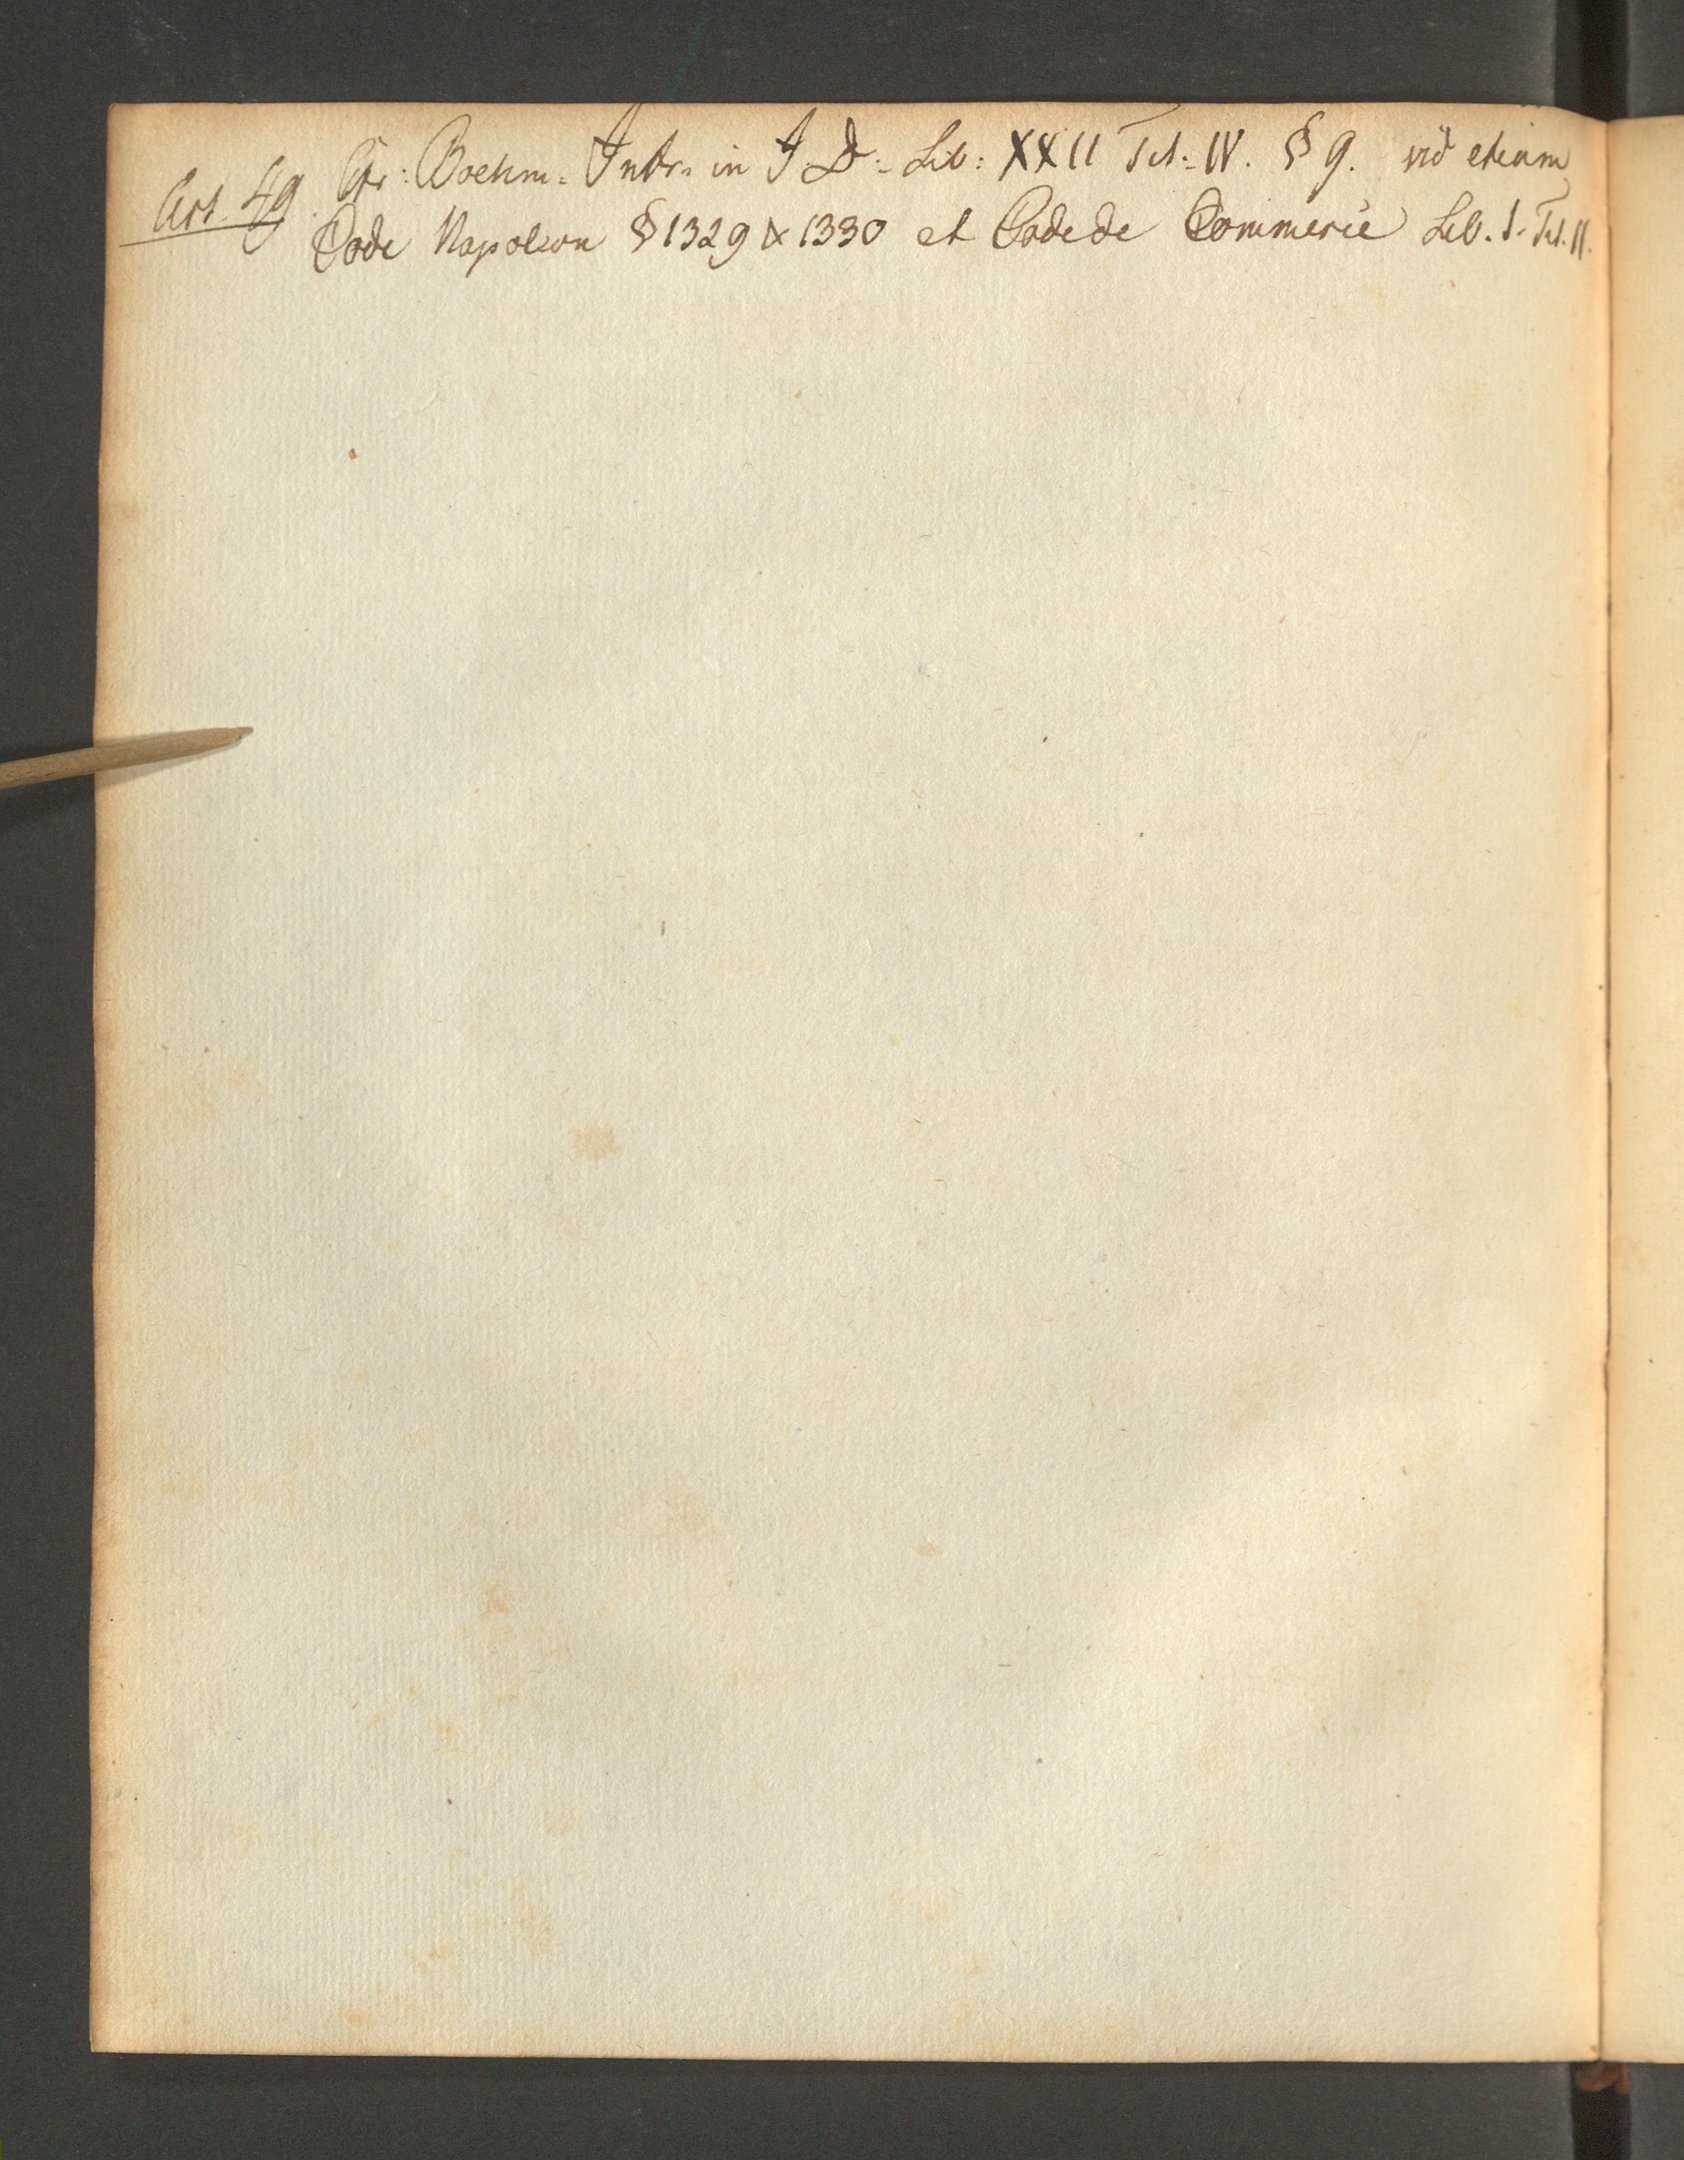 Art. 49. Cfr: Boehm. Intr. in J. D. Lib: XXII Tit: IV. § 9. vid etiam
Code Napoleon § 1329 & 1330 et Code de Commerce Lib. I. Tit. II.